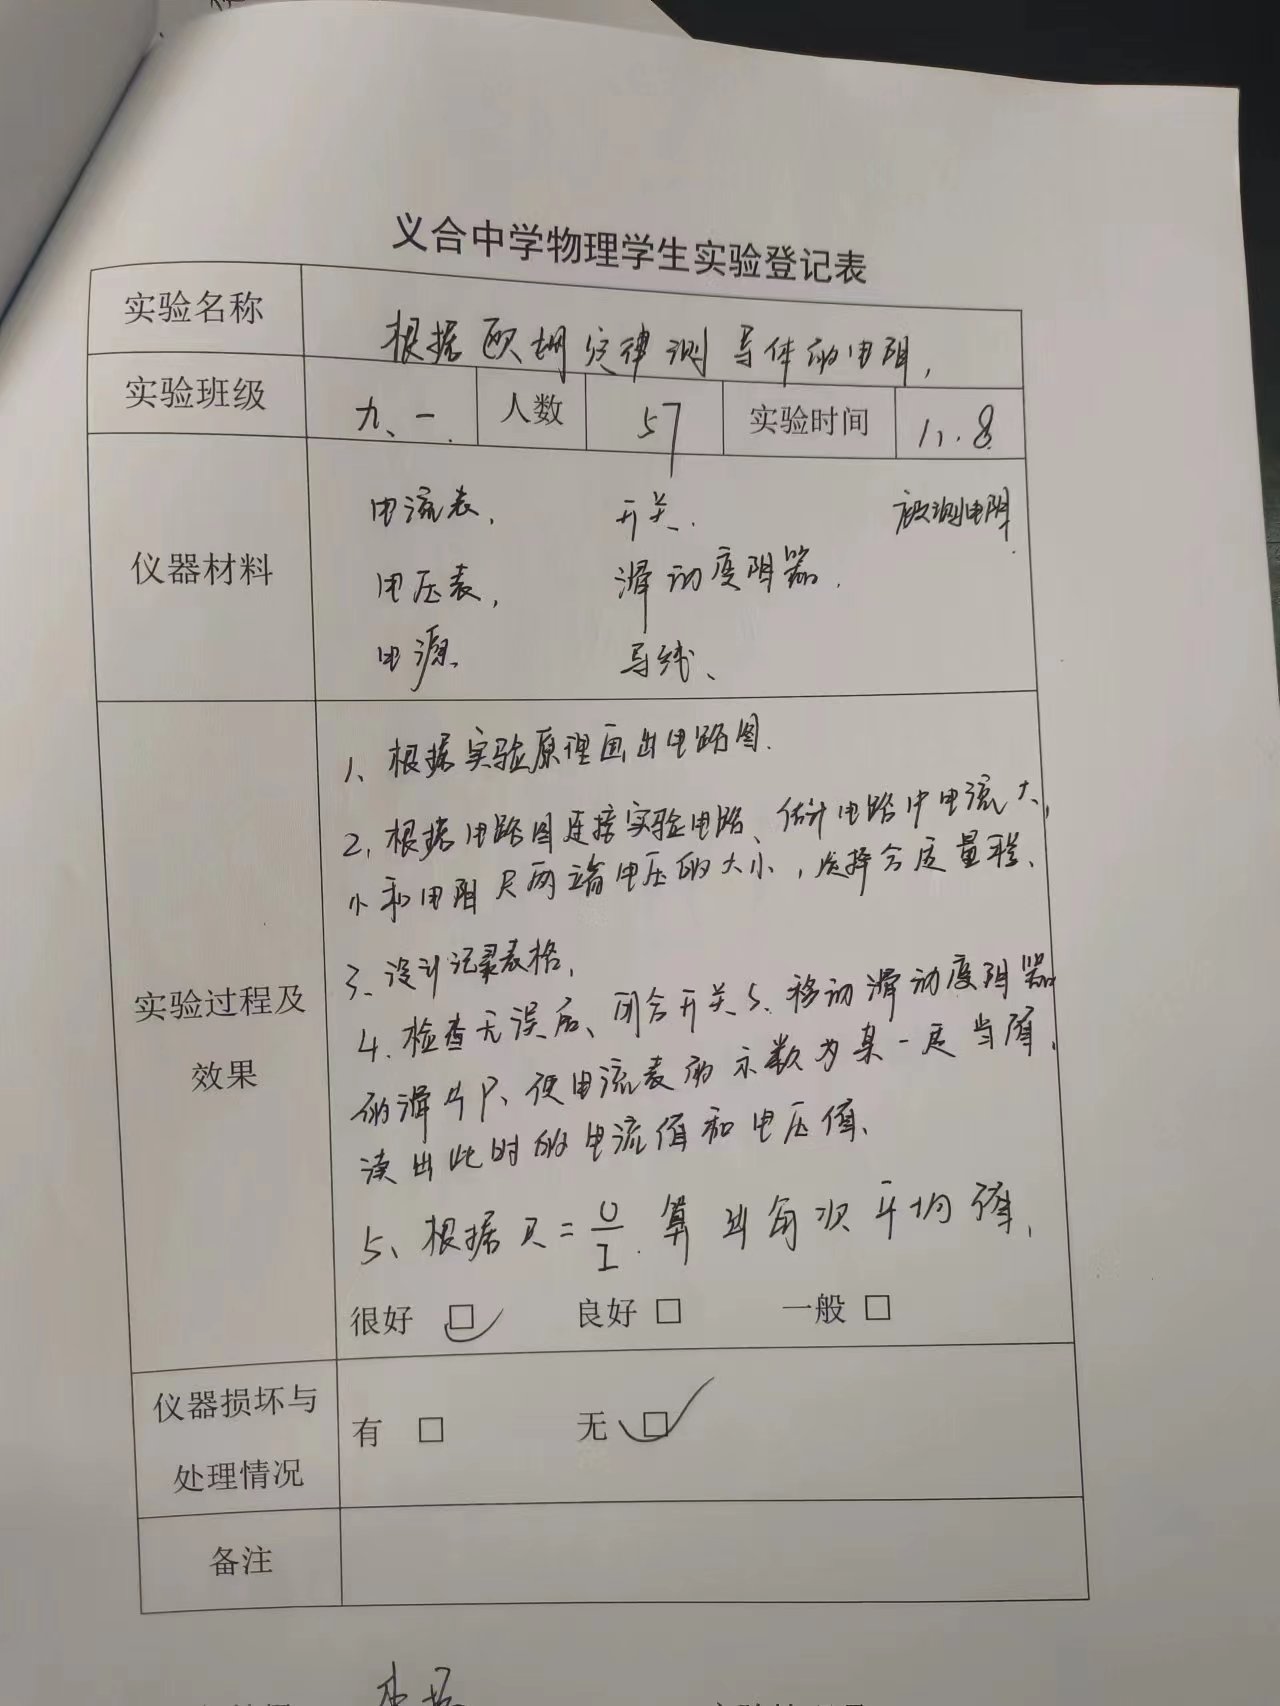 义合中学物理学生实验登记表
实验名称 根据欧姆定律测导体的电阻，
实验班级 九、一. 人数 57 实验时间 11.8
仪器材料
电流表， 开关. 被测电阻.
电压表， 滑动变阻器.
电源、 导线、
实验过程及
效果
1、根据实验原理画出电路图.
2、根据电路图连接实验电路、估计电路中电流大
小和电阻R两端电压的大小，选择合适量程、
3、设计记录表格，
4、检查无误后、闭合开关S、移动滑动变阻器
的滑片P、使电流表的示数为某一适当值，
读出此时的电流值和电压值、
5、根据R=U/I.算出每次平均值、
很好 □ 良好 □ 一般 □
仪器损坏与
处理情况
有 □ 无 □
备注